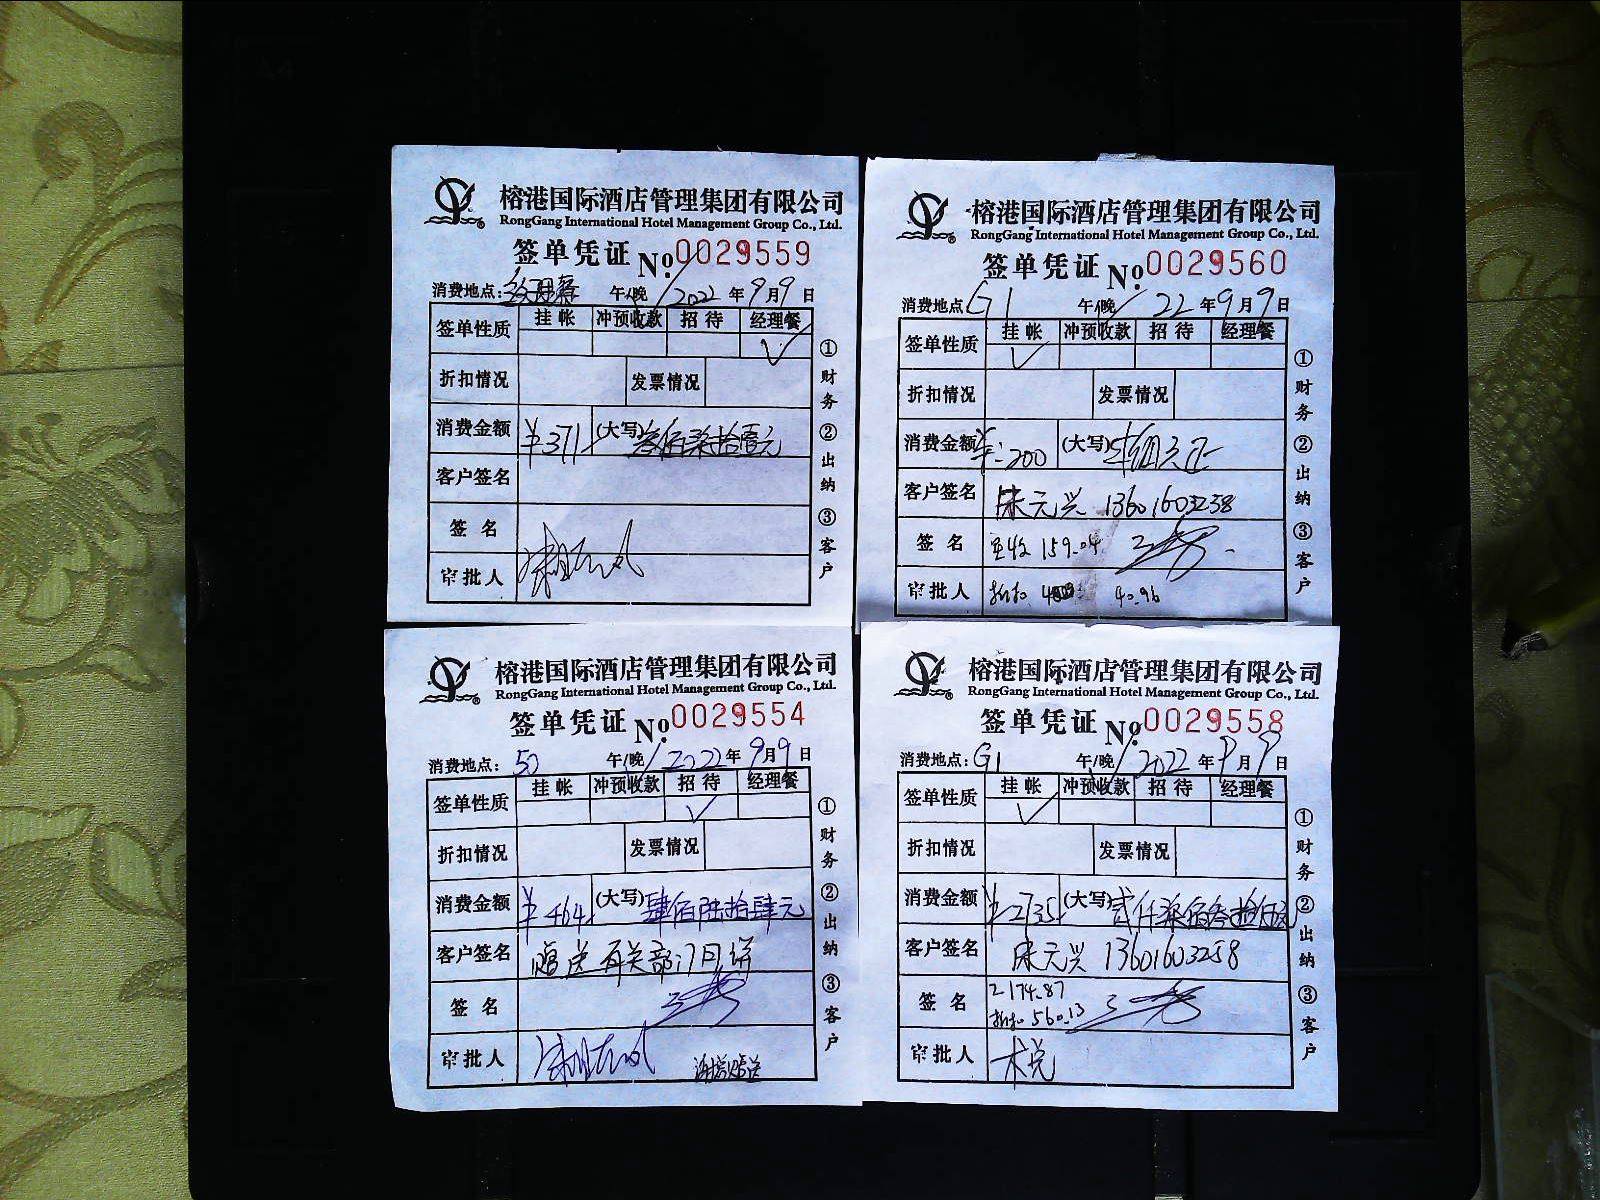 榕港国际酒店管理集团有限公司
RongGang International Hotel Management Group Co., Ltd.
签单凭证 No. 0029559
消费地点: 午/晚 2022 年 9 月 9 日
签单性质 挂帐 冲预收款 招待 经理餐 ✓
折扣情况 发票情况
消费金额 ¥371 (大写) 叁佰柒拾壹元
客户签名
签名
审批人
①财务 ②出纳 ③客户
榕港国际酒店管理集团有限公司
RongGang International Hotel Management Group Co., Ltd.
签单凭证 No. 0029560
消费地点 G1 午/晚 22 年 9 月 9 日
签单性质 挂帐 ✓ 冲预收款 招待 经理餐
折扣情况 发票情况
消费金额 ¥:200 (大写)
客户签名 宋元兴 13601603258
签名 159.04
审批人 折扣 40.96
①财务 ②出纳 ③客户
榕港国际酒店管理集团有限公司
RongGang International Hotel Management Group Co., Ltd.
签单凭证 No. 0029554
消费地点: 50 午/晚 2022 年 9 月 9 日
签单性质 挂帐 冲预收款 招待 ✓ 经理餐
折扣情况 发票情况
消费金额 ¥464 (大写) 肆佰陆拾肆元
客户签名 赠送有关部门月饼
签名
审批人
①财务 ②出纳 ③客户
榕港国际酒店管理集团有限公司
RongGang International Hotel Management Group Co., Ltd.
签单凭证 No. 0029558
消费地点: G1 午/晚 2022 年 9 月 9 日
签单性质 挂帐 ✓ 冲预收款 招待 经理餐
折扣情况 发票情况
消费金额 ¥2735 (大写) 贰仟柒佰叁拾伍元
客户签名 宋元兴 13601603258
签名 2174.87
折扣 560.13
审批人
①财务 ②出纳 ③客户